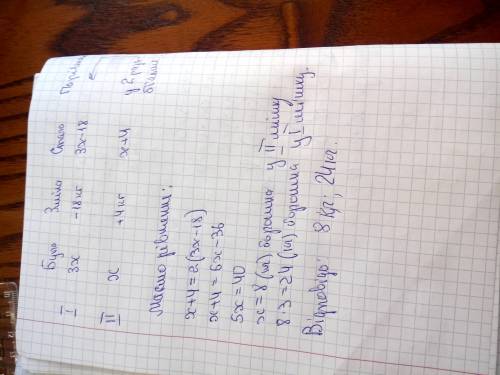 Було Зміна Стало
I 3x -18 кг 3x-18
II x +4 кг x+4 у 2 рази
Маємо рівняння:
x+4=2(3x-18)
x+4=6x-36
5x=40
x=8 (кг) борошна у II мішку
8·3=24 (кг) борошна у I мішку.
Відповідь: 8 кг; 24 кг.